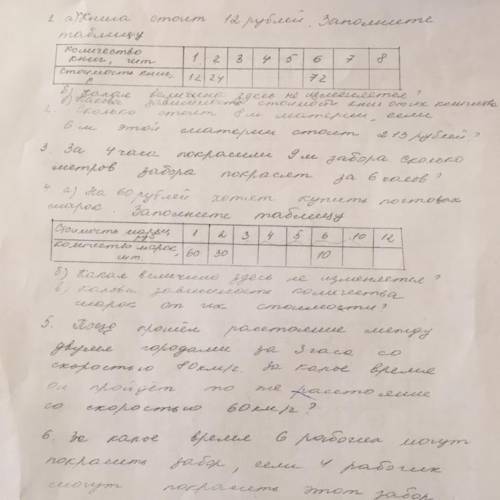 1. а) Книга стоит 12 рублей. Заполните
таблицу
Количество книг, шт. 1 2 3 4 5 6 7 8
Стоимость книг, р 12 24 72
б) Какая величина здесь не изменяется?
в) Какова зависимость стоимости книг от их количества
2. Сколько стоит 8 м материи, если
6 м этой материи стоит 213 рублей?
3. За 4 часа покрасили 9 м забора сколько
метров забора покрасят за 6 часов?
4. а) На 60 рублей хотят купить почтовых
марок. Заполните таблицу
Стоимость марки, руб 1 2 3 4 5 6 10 12
Количество марок, шт. 60 30 10
б) Какая величина здесь не изменяется?
в) Какова зависимость количества
марок от их стоимости?
5. Поезд прошёл расстояние между
двумя городами за 3 часа со
скоростью 80 км/г. За какое время
он пройдёт то же расстояние
со скоростью 60 км/г?
6. За какое время 6 рабочих могут
покрасить забор, если 4 рабочих
могут покрасить этот забор